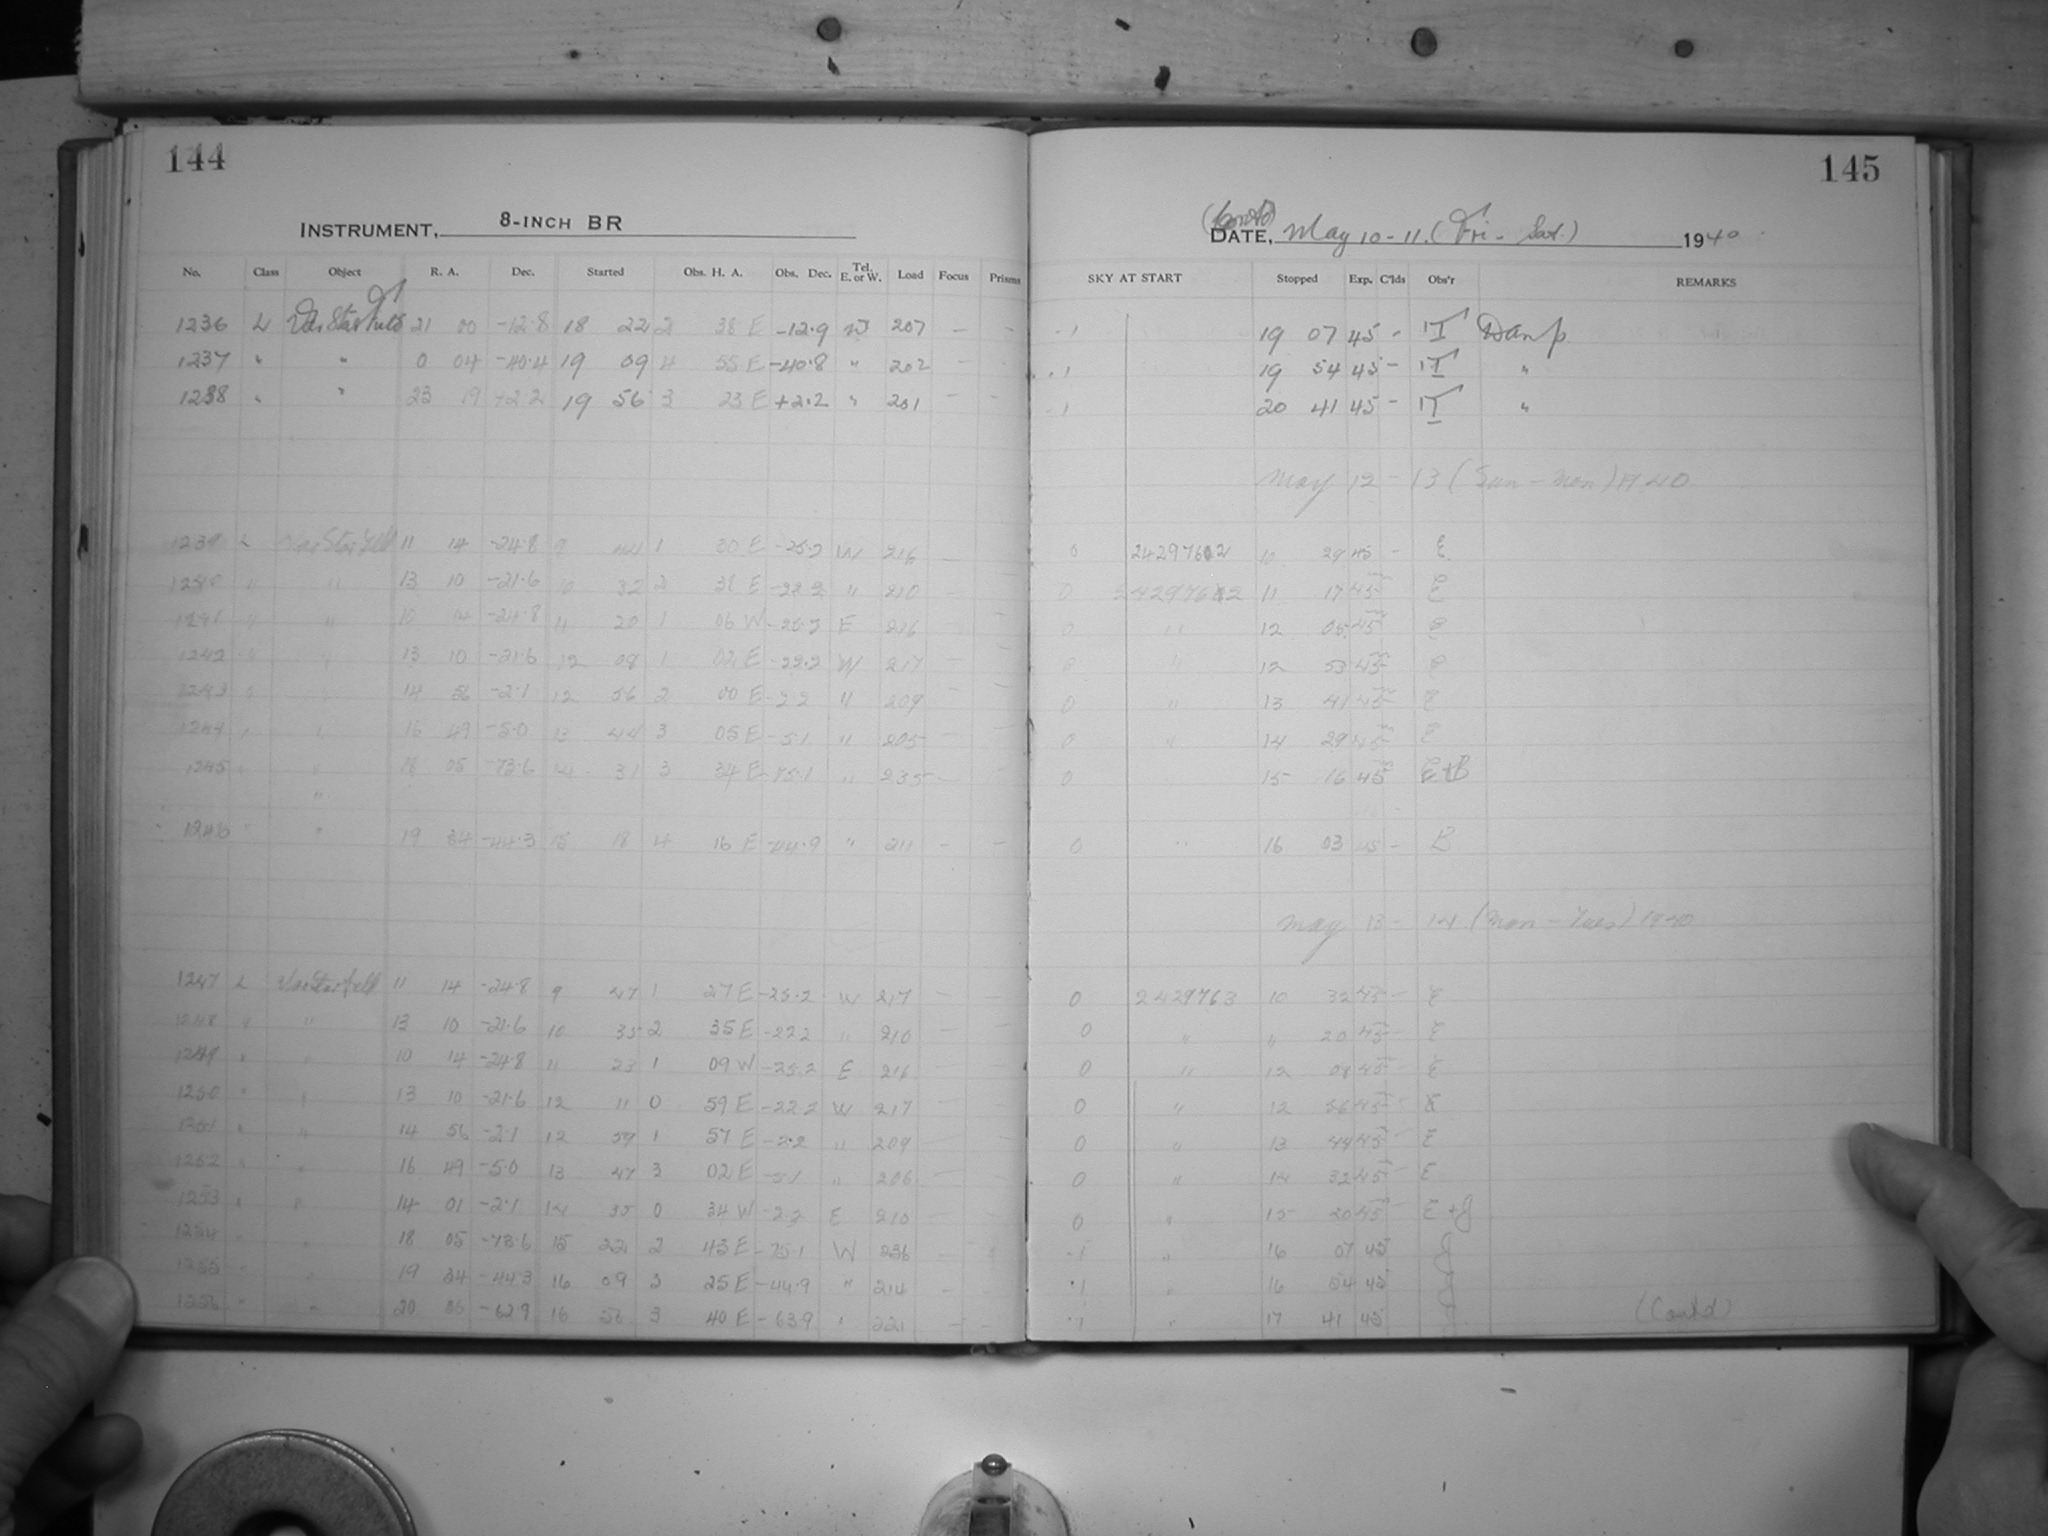 144
INSTRUMENT, 8-INCH BR
No. Class Object R. A. Dec. Started Obs. H. A. Obs. Dec. Tel. E. or W. Load Focus Prisms
1236 L Var Star Field 21 00 -12.8 18 22 2 38 E -12.9 W 207 - -
1237 " " 0 04 -40.4 19 09 4 55 E -40.8 " 202 - -
1238 " " 23 19 +2.2 19 56 3 23 E +2.2 " 201 - -
1239 L Var Star Field 11 14 -24.8 9 44 1 30 E -25.2 W 216
1240 " " 13 10 -21.6 10 32 2 38 E -22.2 " 210
1241 " " 10 14 -24.8 11 20 1 06 W -25.2 E 216
1242 " " 13 10 -21.6 12 08 1 02 E -22.2 W 217
1243 " " 14 56 -2.1 12 56 2 00 E -2.2 " 209
1244 " " 16 49 -5.0 13 44 3 05 E -5.1 " 205
1245 " " 18 05 -73.6 14 31 3 34 E -75.1 " 235
"
1246 " " 19 34 -44.3 15 18 4 16 E -44.9 " 211 - -
1247 L Var Star field 11 14 -24.8 9 47 1 27 E -25.2 W 217 - -
1248 " " 13 10 -21.6 10 35 2 35 E -22.2 " 210
1249 " " 10 14 -24.8 11 23 1 09 W -25.2 E 216
1250 " " 13 10 -21.6 12 11 0 59 E -22.2 W 217
1251 " " 14 56 -2.1 12 59 1 57 E -2.2 " 209
1252 " " 16 49 -5.0 13 47 3 02 E -5.1 " 206
1253 " " 14 01 -2.1 14 35 0 34 W -2.2 E 210
1254 " " 18 05 -73.6 15 22 2 43 E -75.1 W 236
1255 " " 19 34 -44.3 16 09 3 25 E -44.9 " 214 - -
1256 " " 20 -62.9 16 56 3 40 E -63.9 " 221 - -
145
(Contd)
DATE, May 10-11. (Fri - Sat.) 1940
SKY AT START Stopped Exp. C'lds Obs'r REMARKS
-1 19 07 45 - Damp
-1 19 54 45 - "
-1 20 41 45 - "
May 12 - 13 (Sun - Mon) 1940
0 2429762 10 29 45 - E
0 2429762 11 17 45 E
0 " 12 05 45 E
0 " 12 53 45 E
0 " 13 41 45 E
0 " 14 29 45 E
0 15 16 45 E+B
0 " 16 03 45 - B
May 13 - 14 (Mon - Tues) 1940
0 2429763 10 32 45 - E
0 " " 20 45 - E
0 " 12 08 45 - E
0 " 12 56 45 - E
0 " 13 44 45 - E
0 " 14 32 45 - E
0 " 15 20 45 E+B
-1 " 16 07 45 B
-1 " 16 54 45
-1 " 17 41 45
(Contd)